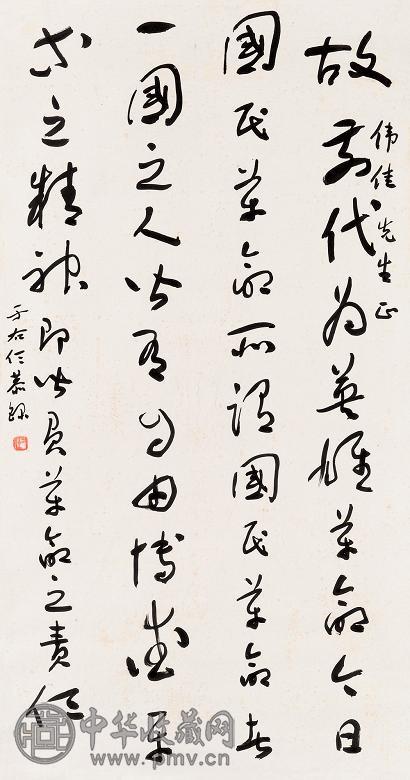 伟佳先生正
故前代为英雄革命今日
國民革命所謂國民革命者
一國之人皆有自由博愛平
等之精神即皆負革命之責任
于右任恭錄
中华收藏网
www.pmv.cn